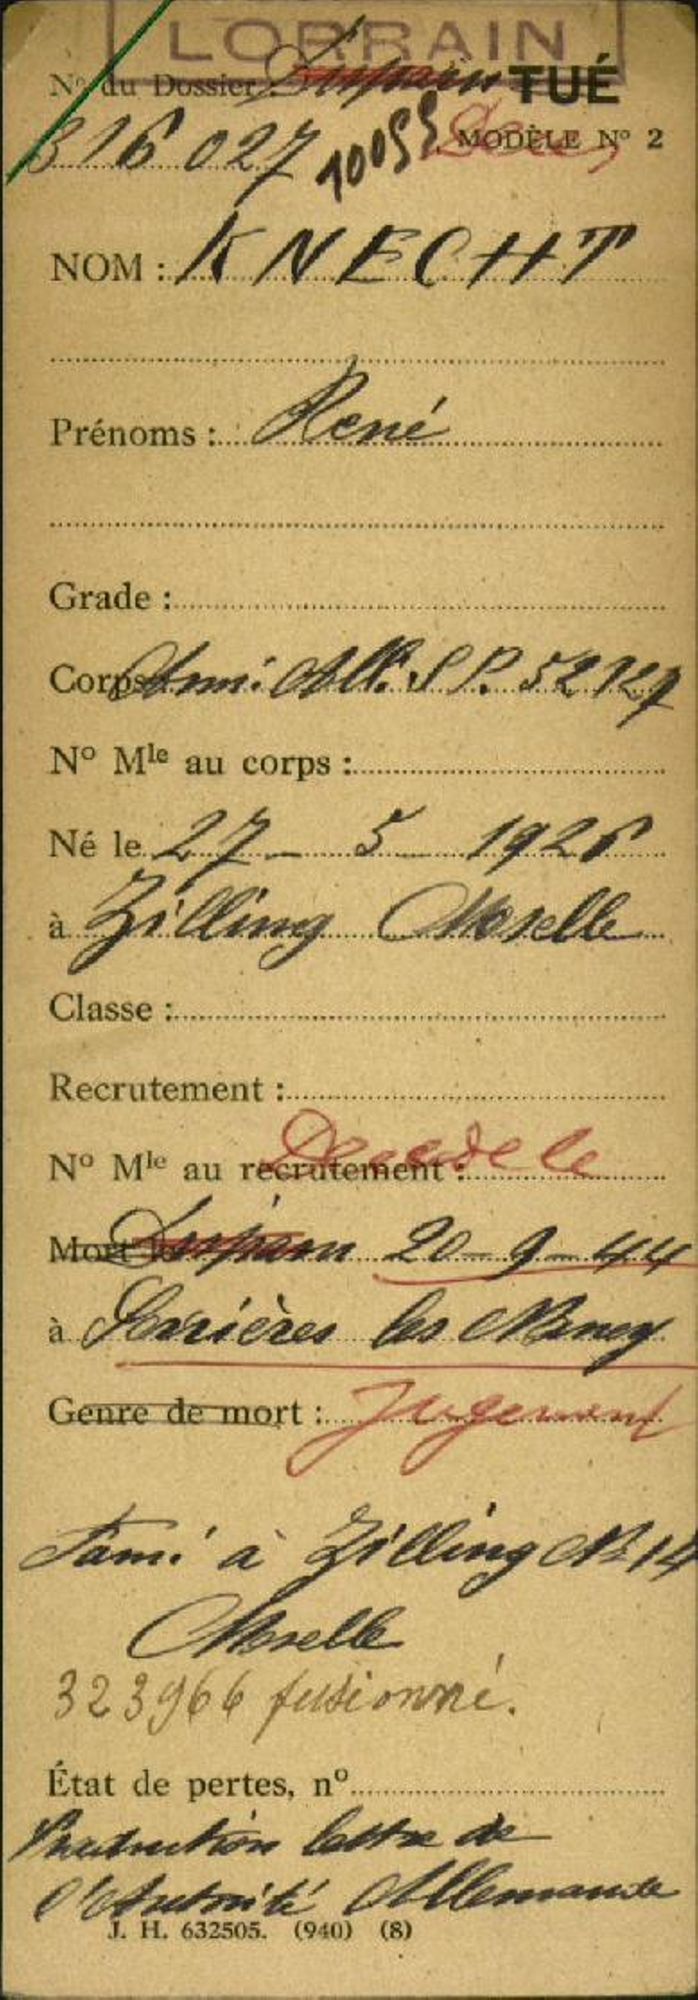 LORRAIN
N° du Dossier : Disparu TUÉ
316 027 10055 MODÈLE N° 2
NOM : KNECHT
Prénoms : René
Grade :
Corps Armé: All. S P. 52127
N° Mle au corps :
Né le 27 - 5 1926
à Zilling Moselle
Classe :
Recrutement :
Décédé le
N° Mle au recrutement :
Mort le Disparu 20-9-44
à Ferrières les Nancy
Genre de mort : Jugement
Fami: à Zilling N: 14
Moselle
323966 fusionné.
État de pertes, n°
Traduction lettre de
l'Autorité Allemande
J. H. 632505. (940) (8)